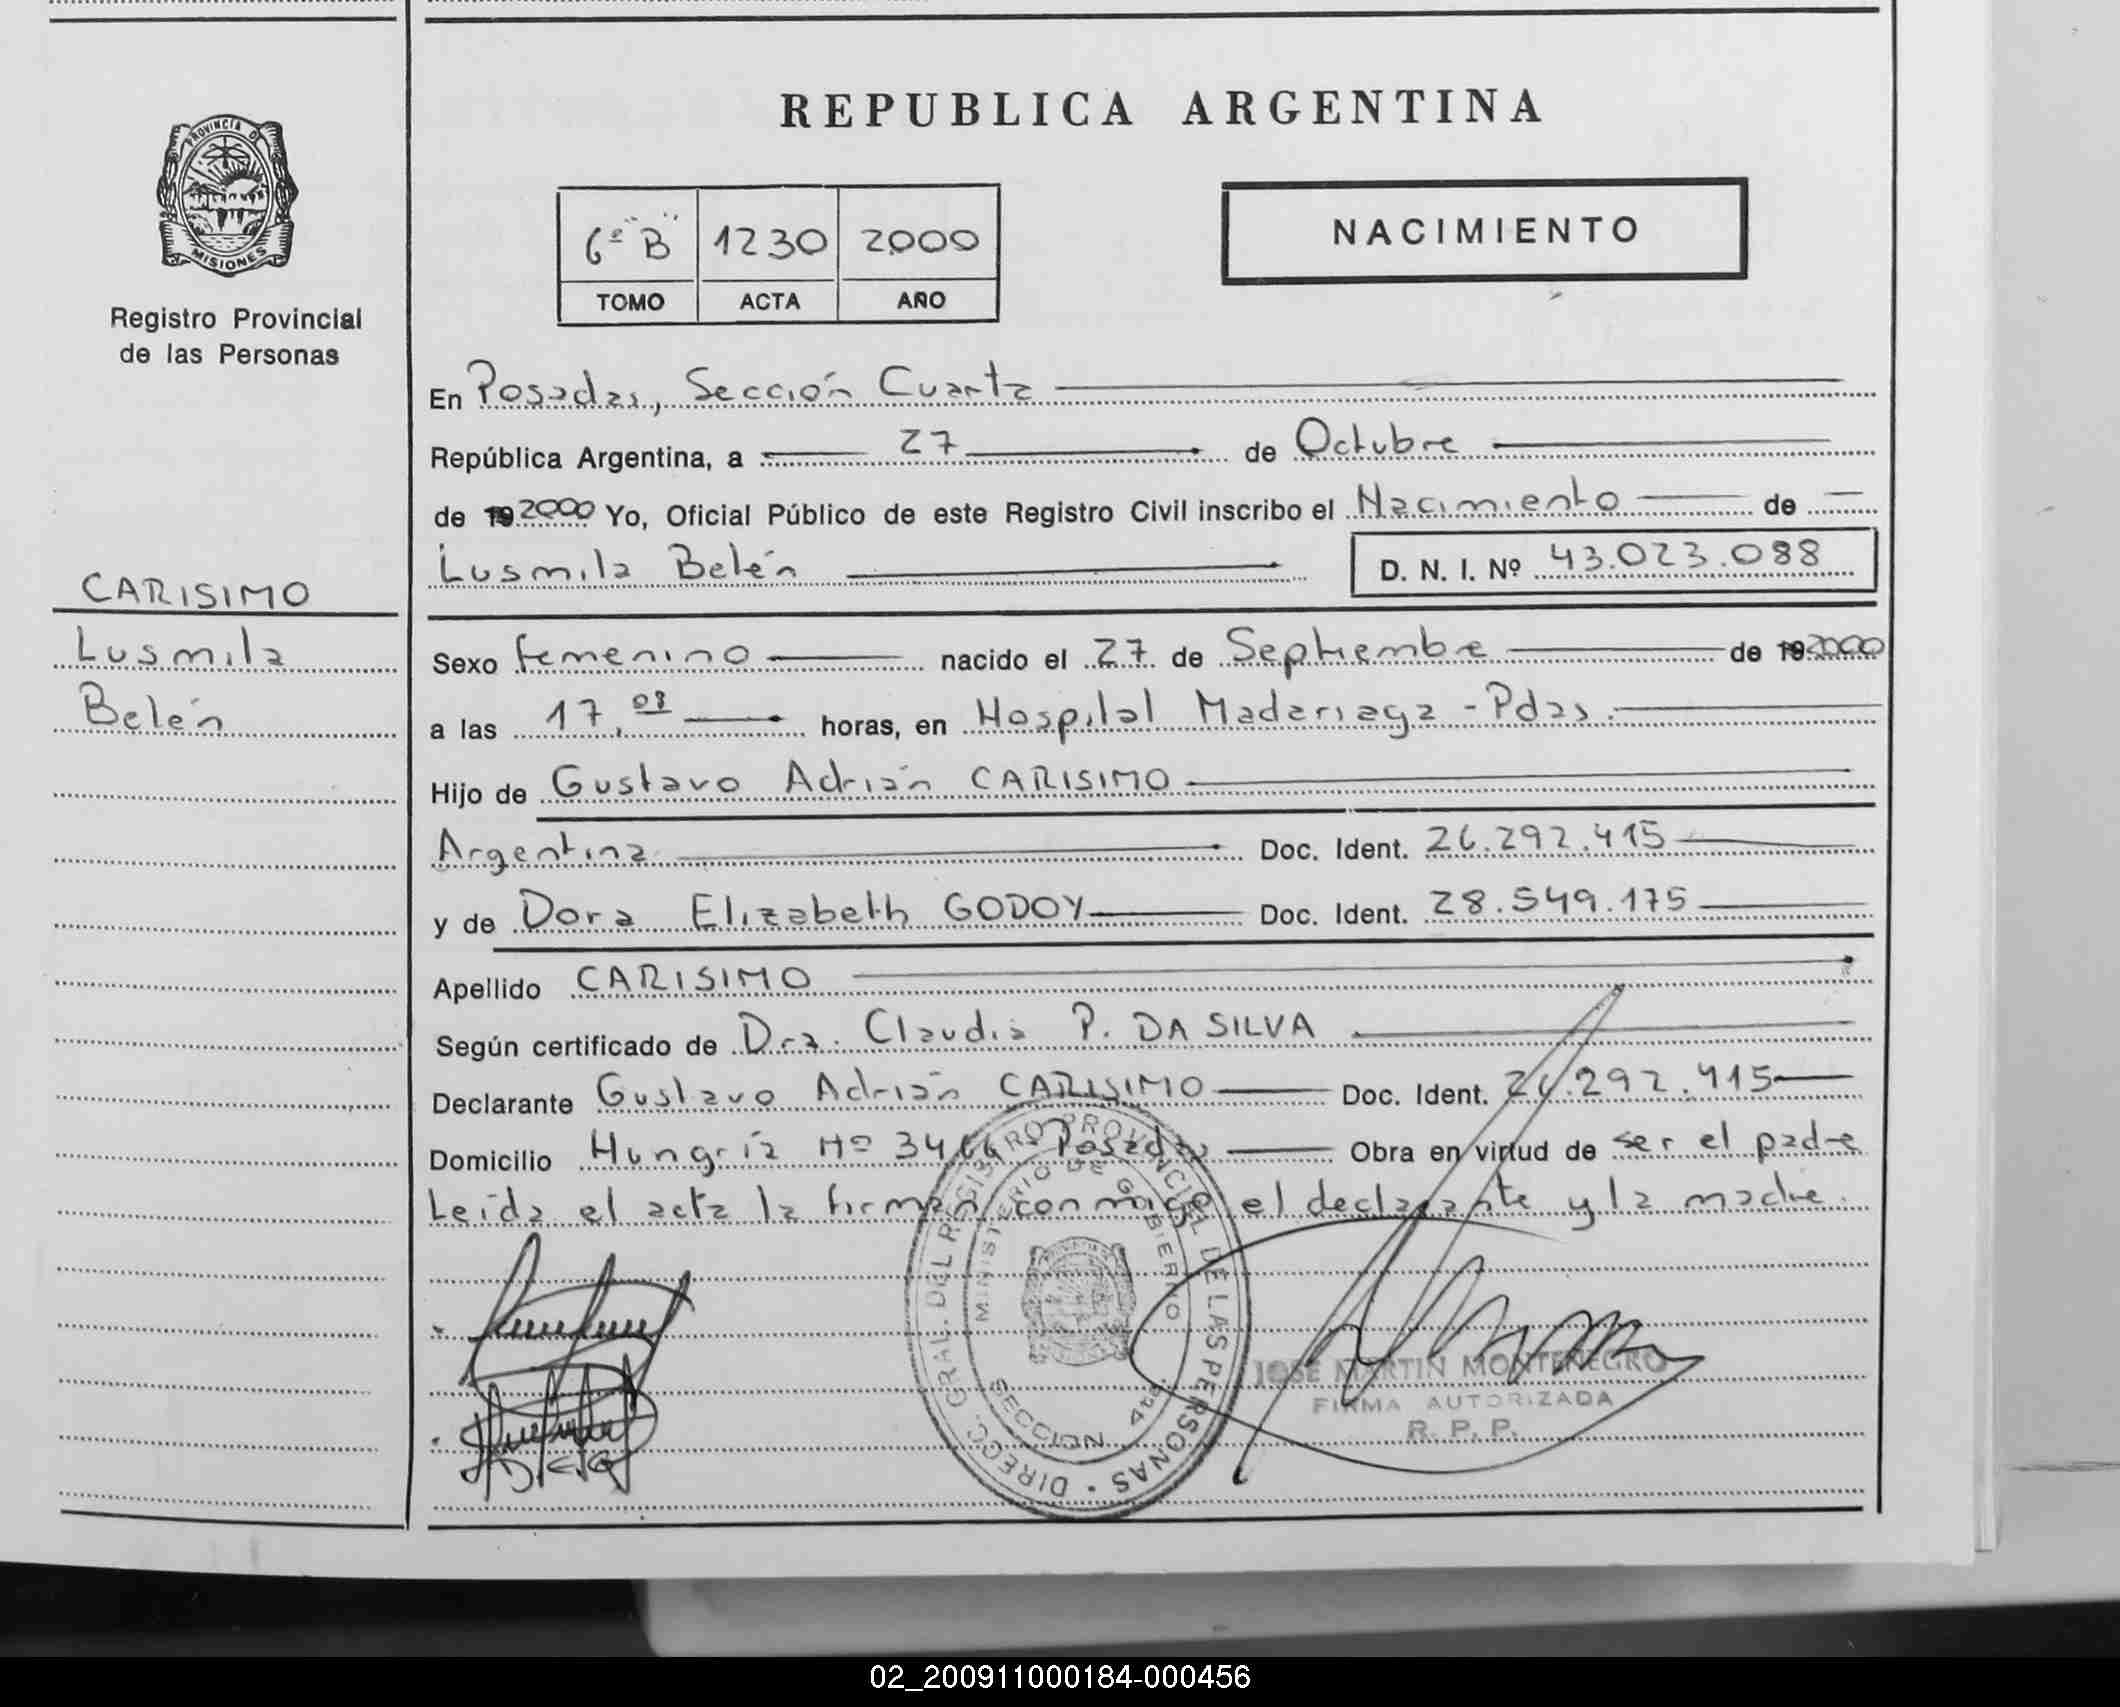 REPUBLICA ARGENTINA
PROVINCIA DE
MISIONES
Registro Provincial
de las Personas
6º "B" 1230 2000
TOMO ACTA AÑO
NACIMIENTO
En Posadas, Sección Cuarta
República Argentina, a 27 de Octubre
de 19 2000 Yo, Oficial Público de este Registro Civil inscribo el Nacimiento de
Lusmila Belén D. N. I. Nº 43.023.088
CARISIMO
Lusmila
Belén
Sexo femenino nacido el 27 de Septiembre de 19 2000
a las 17,08 horas, en Hospital Madariaga - Pdas.
Hijo de Gustavo Adrián CARISIMO
Argentina Doc. Ident. 26.292.415
y de Dora Elizabeth GODOY Doc. Ident. 28.549.175
Apellido CARISIMO
Según certificado de Dra. Claudia P. DA SILVA
Declarante Gustavo Adrián CARISIMO Doc. Ident. 26.292.415
Domicilio Hungría Nº 3466 - Posadas Obra en virtud de ser el padre
Leída el acta la firman conmigo el declarante y la madre.
DIRECC. GRAL. DEL REGISTRO PROVINCIAL DE LAS PERSONAS
MINISTERIO DE GOBIERNO
SECCION 4ta.
JOSE MARTIN MONTENEGRO
FIRMA AUTORIZADA
R. P. P.
02_200911000184-000456